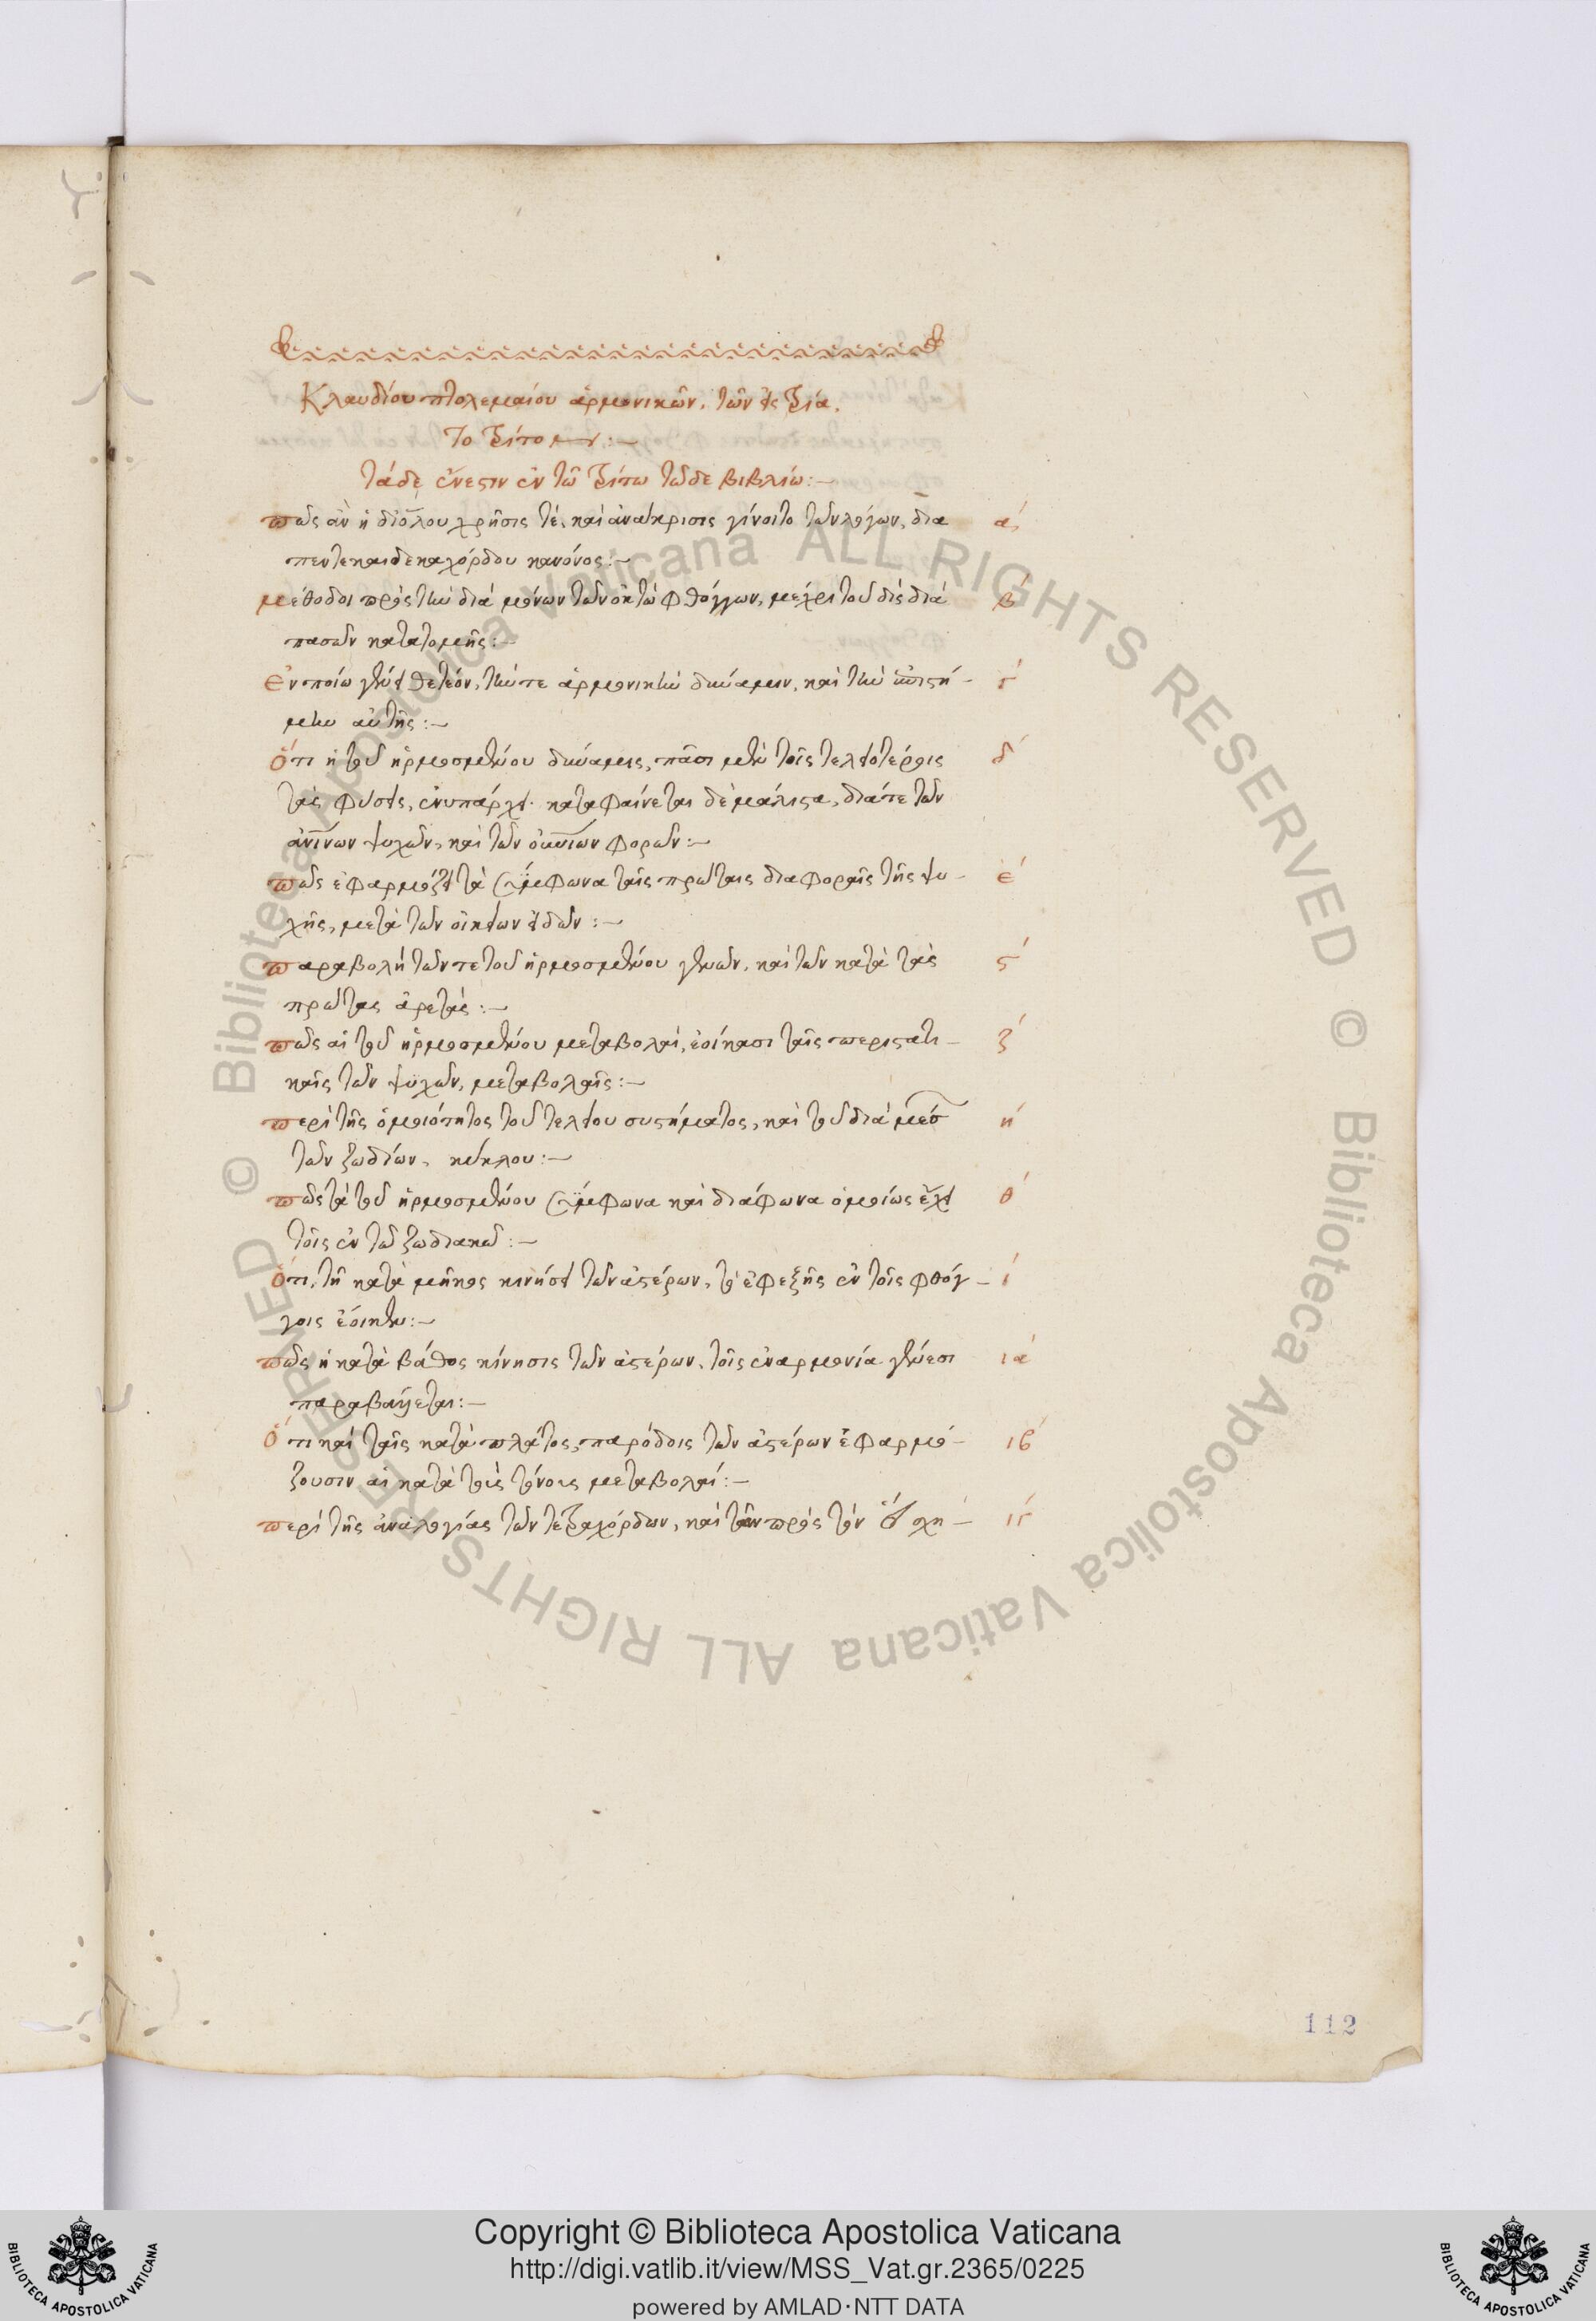 Κλαυδίου πτολεμαίου ἁρμονικῶν, τῶν εἰς τρία.
Τὸ τρίτον:-
τάδε ἔνεστιν ἐν τῶ τρίτω τῶδε βιβλίω:-
πῶς ἂν ἡ διόλου χρῆσις τὲ, καὶ ἀνάκρισις γίνοιτο τῶν λόγων, δια α΄
πεντεκαιδεκαχόρδου κανόνος:-
μέθοδοι πρὸς τὴν διὰ μόνων τῶν ὀκτὼ φθόγγων, μέχρι τοῦ δὶς διὰ β΄
πασῶν κατατομῆς:-
Ἐν ποίω γένει θετέον, τήν τε ἁρμονικὴν δύναμιν, καὶ τὴν ἐπιστή- γ΄
μην αὐτῆς:-
Ὅτι ἡ τοῦ ἡρμοσμένου δύναμις, πᾶσι μὲν τοῖς τελειοτέροις δ΄
τὰς φύσεις, ἐνυπάρχει. καταφαίνεται δὲ μάλιστα, διά τε τῶν
ἀνίνων ψυχῶν, καὶ τῶν οὐνίων φορῶν:-
πῶς ἐφαρμόζει τὰ σύμφωνα ταῖς πρώταις διαφοραῖς τῆς ψυ- ε΄
χῆς, μετὰ τῶν οἰκείων εἰδῶν:-
παραβολὴ τῶν τε τοῦ ἡρμοσμένου γενῶν, καὶ τῶν κατὰ τὰς ς΄
πρώτας ἀρετάς:-
πῶς αἱ τοῦ ἡρμοσμένου μεταβολαὶ, ἐοίκασι ταῖς περιστατι- ζ΄
καῖς τῶν ψυχῶν, μεταβολαῖς:-
περὶ τῆς ὁμοιότητος τοῦ τελείου συστήματος, καὶ τοῦ διὰ μέσ η΄
τῶν ζωδίων, κύκλου:-
πῶς τὰ τοῦ ἡρμοσμένου σύμφωνα καὶ διάφωνα ὁμοίως ἔχει θ΄
τοῖς ἐν τῶ ζωδιακῶ:-
Ὅτι, τῆ κατὰ μῆκος κινήσει τῶν ἀστέρων, τὸ ἐφεξῆς ἐν τοῖς φθόγ- ι΄
γοις ἔοικεν:-
πῶς ἡ κατὰ βάθος κίνησις τῶν ἀστέρων, τοῖς ἐναρμονία γένεσι ια΄
παραβάλλεται:-
Ὅτι καὶ ταῖς κατὰ πλάτος, παρόδοις τῶν ἀστέρων ἐφαρμό- ιβ΄
ζουσιν αἱ κατὰ τοὺς τόνους μεταβολαί:-
περὶ τῆς ἀναλογίας τῶν τετραχόρδων, καὶ τῶν πρὸς τὸν σχη- ιγ΄
112
Copyright © Biblioteca Apostolica Vaticana
http://digi.vatlib.it/view/MSS_Vat.gr.2365/0225
powered by AMLAD·NTT DATA
BIBLIOTECA APOSTOLICA VATICANA
BIBLIOTECA APOSTOLICA VATICANA
© Biblioteca Apostolica Vaticana ALL RIGHTS RESERVED © Biblioteca Apostolica Vaticana ALL RIGHTS RESERVED